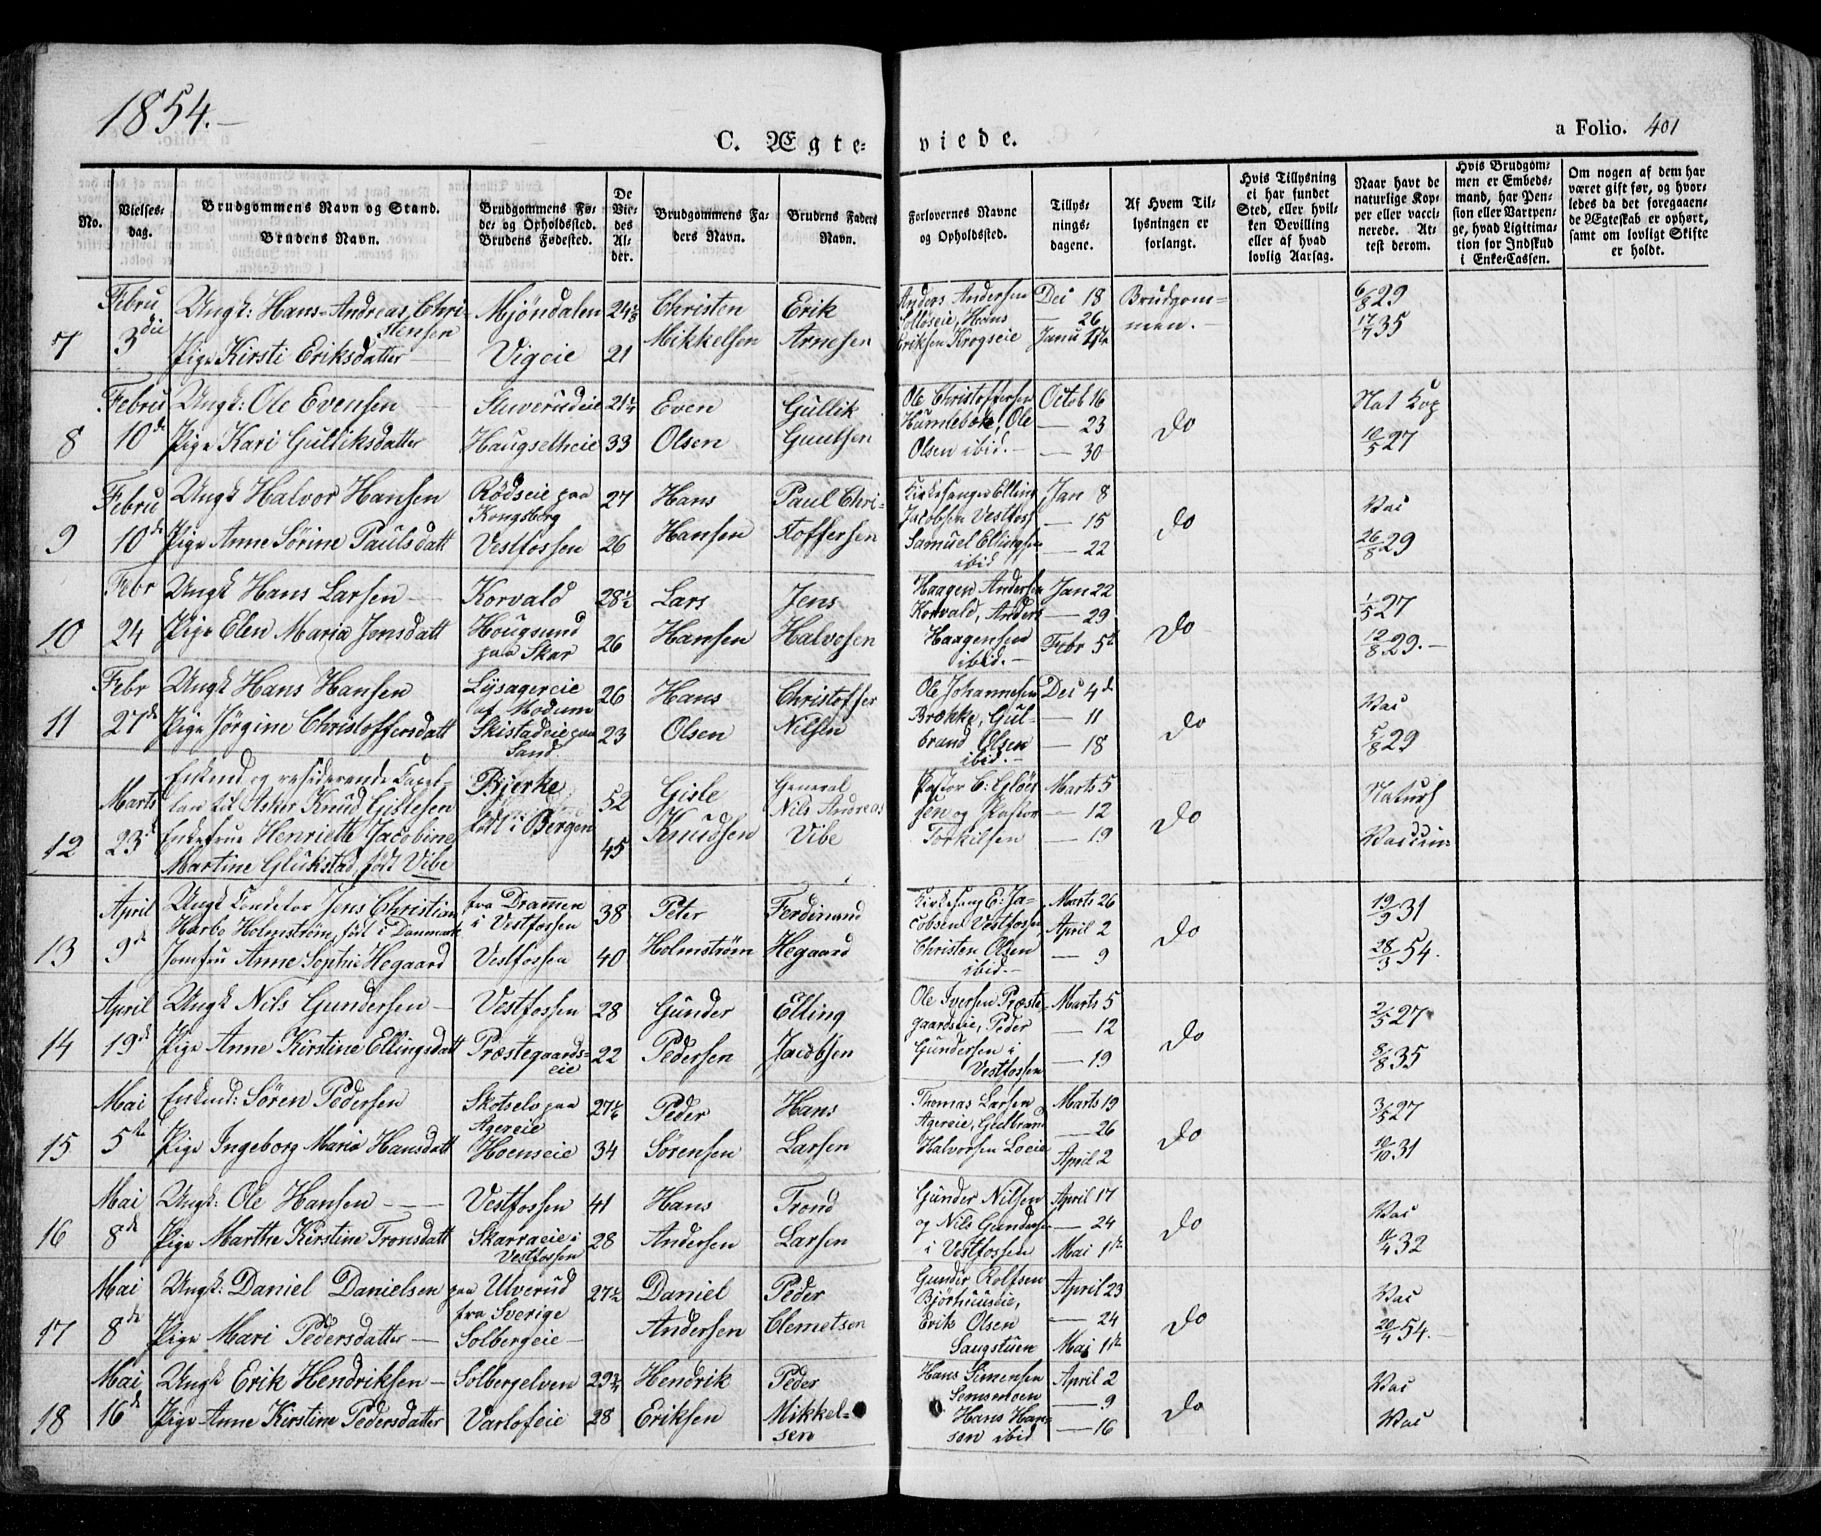 1854.-
C. Ægte- viede.
a Folio. 401
No.
Vielses-
dag.
Brudgommens Navn og Stand.
Brudens Navn.
Brudgommens Fø-
de- og Opholdssted.
Brudens Fødested.
De
Vie-
des
Al-
der.
Brudgommens Fa-
ders Navn.
Brudens Faders
Navn.
Forlovernes Navne
og Opholdssted.
Tillys-
nings-
dagene.
Af Hvem Til-
lysningen er
forlangt.
Hvis Tillysning
ei har fundet
Sted, eller hvil-
ken Bevilling
eller af hvad
lovlig Aarsag.
Naar havt de
naturlige Kop-
per eller vacci-
nerede. At-
test derom.
Hvis Brudgom-
men er Embeds-
mand, har Pen-
sion eller Vartpen-
ge, hvad Ligitima-
tion for Indskud
i Enke-Cassen.
Om nogen af dem har
været gift før, og hvor-
ledes da det foregaaen-
de Ægteskab er ophørt,
samt om lovligt Skifte
er holdt.
7 Febru 3die Ungk: Hans Andreas Chri-
stensen Mjøndalen 24 Christen Mikkelsen Erik Arnesen
Pige Kirsti Eriksdatter Vigeie 21
Anders Andersen Solløseie, Hans Eriksen Krogseie
Dec 18 — 26 Janu 1ste
Brudgom-
men.-
6/8 29
17/7 35
8 Febru 10de Ungk: Ole Evensen Stuverudeie 21 1/4 Even Olsen Gullik Guulsen
Pige Kari Gulliksdatter Haugsetheie 33
Ole Christoffersen Humlebæk, Ole Olsen ibid.-
Octob 16 — 23 — 30
Do
Nat Kop
10/5 27
9 Febru 10de Ungk Halvor Hansen Rødseie paa Kongsberg 27 Hans Hansen Paul Chri-
stoffersen
Pige Anne Sørine Paulsdatt Vestfossen 26
Kirkesanger Elling Jacobsen Vestfoss Samuel Ellingsen ibid
Jan 8 — 15 — 22
Do
Vac
26/8 29
10 Febr 24 Ungk Hans Larsen Korvald 28 1/2 Lars Hansen Jens Halvosen
Pige Elen Maria Jensdatt Hougsund paa Skar 26
Haagen Andersen Korvald, Anders Haagensen ibid.-
Jan 22 — 29 Febr 5te
Do
1/5 27
12/8 29.-
11 Febr 27de Ungk Hans Hansen Lysagereie af Modum 26 Hans Olsen Christoffer Nilsen
Pige Jørgine Christoffersdatt Skistadeie paa Sand 23
Ole Johannesen Brekke, Gul-
brand Olsen ibid.-
Dec 4de — 11 — 18
Do
Vac
5/8 29
12 Marts 23de Enkmd og residerende Capel-
lan til Asker Knud Gislesen Bjerke 52 Gisle Knudsen General Nils Andreas Vibe
Enkefrue Henriette Jacobine
Martine Glükstad, født Vibe født i Bergen 45
Pastor C: Gløer-
sen og Pastor Torkilsen
Marts 5 — 12 — 19
Do
Naturl
Vaccin:
13 April 9de Ungk Conditor Jens Christian
Harbo Holmstrøm, født i Danmark fra Drammen i Vestfossen 38 Peter Holmstrøm Ferdinand Hegaard
Jomfru Anne Sophie Hegaard Vestfossen 40
Kirkesang E. Ja-
cobsen Vestfossen Christen Olsen ibid.-
Marts 26 April 2 — 9
Do
19/9 31
28/3 54.
14 April 19de Ungk Nils Gundersen Vestfossen 28 Gunder Pedersen Elling Jacobsen
Pige Anne Kirstine Ellingsdatt Præstegaards-
eie 22
Ole Iversen Præste-
gaardseie, Peder Gundersen i Vestfossen
Marts 5 — 12 — 19
Do
2/5 27
8/8 35
15 Mai 5te Enkmd: Søren Pedersen Skotselv paa Agereie 27 1/2 Peder Sørensen Hans Larsen
Pige Ingeborg Maria Hansdatt Hoenseie 34
Thomas Larsen Agereie, Gulbrand Halvorsen Loeie
Marts 19 — 26 April 2
Do
3/5 27
10/10 31
16 Mai 8de Ungk: Ole Hansen Vestfossen 41 Hans Andersen Trond Larsen
Pige Marthe Kirstine Tronsdatt Skarraeie i Vestfossen 28
Gunder Nilsen og Nils Gundersen i Vestfossen
April 17 — 24 Mai 1ste
Do
Vac
14/4 32
17 Mai 8de Ungk: Daniel Danielsen paa Ulverud fra Sverige 27 1/2 Daniel Andersen Peder Clemetsen
Pige Mari Pedersdatter Solbergeie 
Gunder Rolfsen Bjørhuuseie, Erik Olsen Saugstuen
April 23 — 24 Mai 1ste
Do
Vac
20/4 54.-
18 Mai 16de Ungk Erik Hendriksen Solbergelven 29 3/4 Hendrik Eriksen Peder Mikkel-
sen
Pige Anne Kirstine Pedersdatter Varlofeie 28
Hans Simensen Semsmoen Hans Han-
sen ibid
April 2 — 9 — 16
Do
Vac
Vac